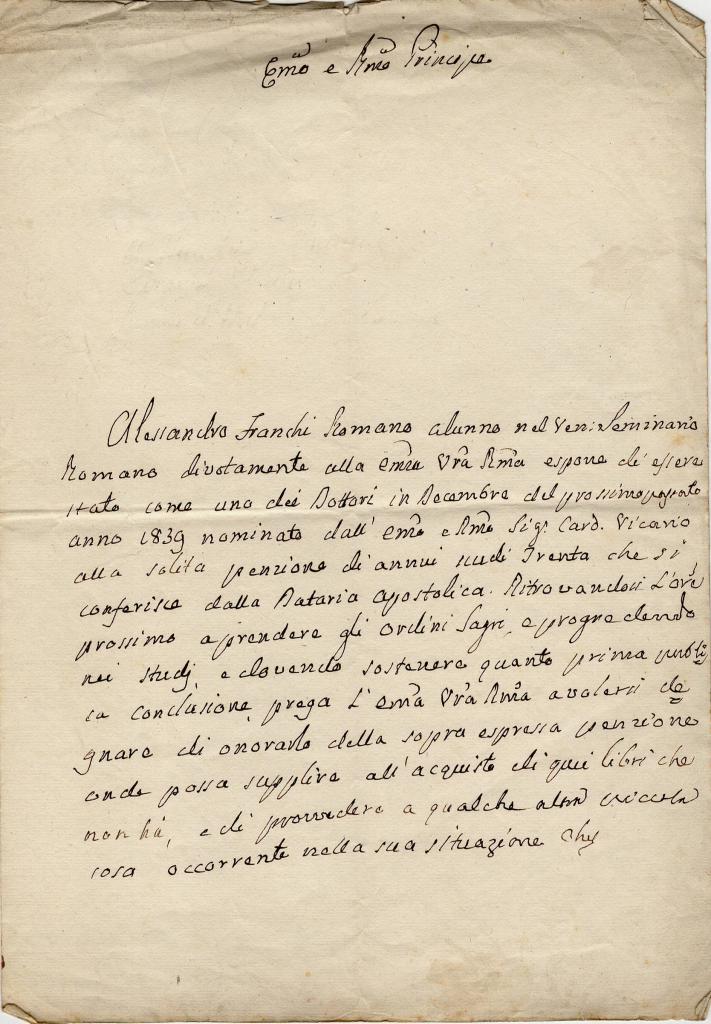 Emo e Rmo Principe
Alessandro Franchi Romano alunno nel Ven: Seminario
Romano divotamente alla Emza Vra Rma espone di essere
stato come uno dei Dottori in Decembre del prossimo passato
anno 1839 nominato dall' Emo e Rmo Sigr Card. Vicario
alla solita penzione di annui scudi Trenta che si
conferisce dalla Dataria Apostolica. Ritrovandosi L'Ore
prossimo a prendere gli Ordini Sagri, e progredendo
nei studj, e dovendo sostenere quanto prima publi
ca conclusione, prega L' Emza Vra Rma a volersi de
gnare di onorarlo della sopra espressa penzione
onde possa supplire all' acquisto di quei libri che
non há, e di provvedere a qualche altra piccola
cosa occorrente nella sua situazione Che